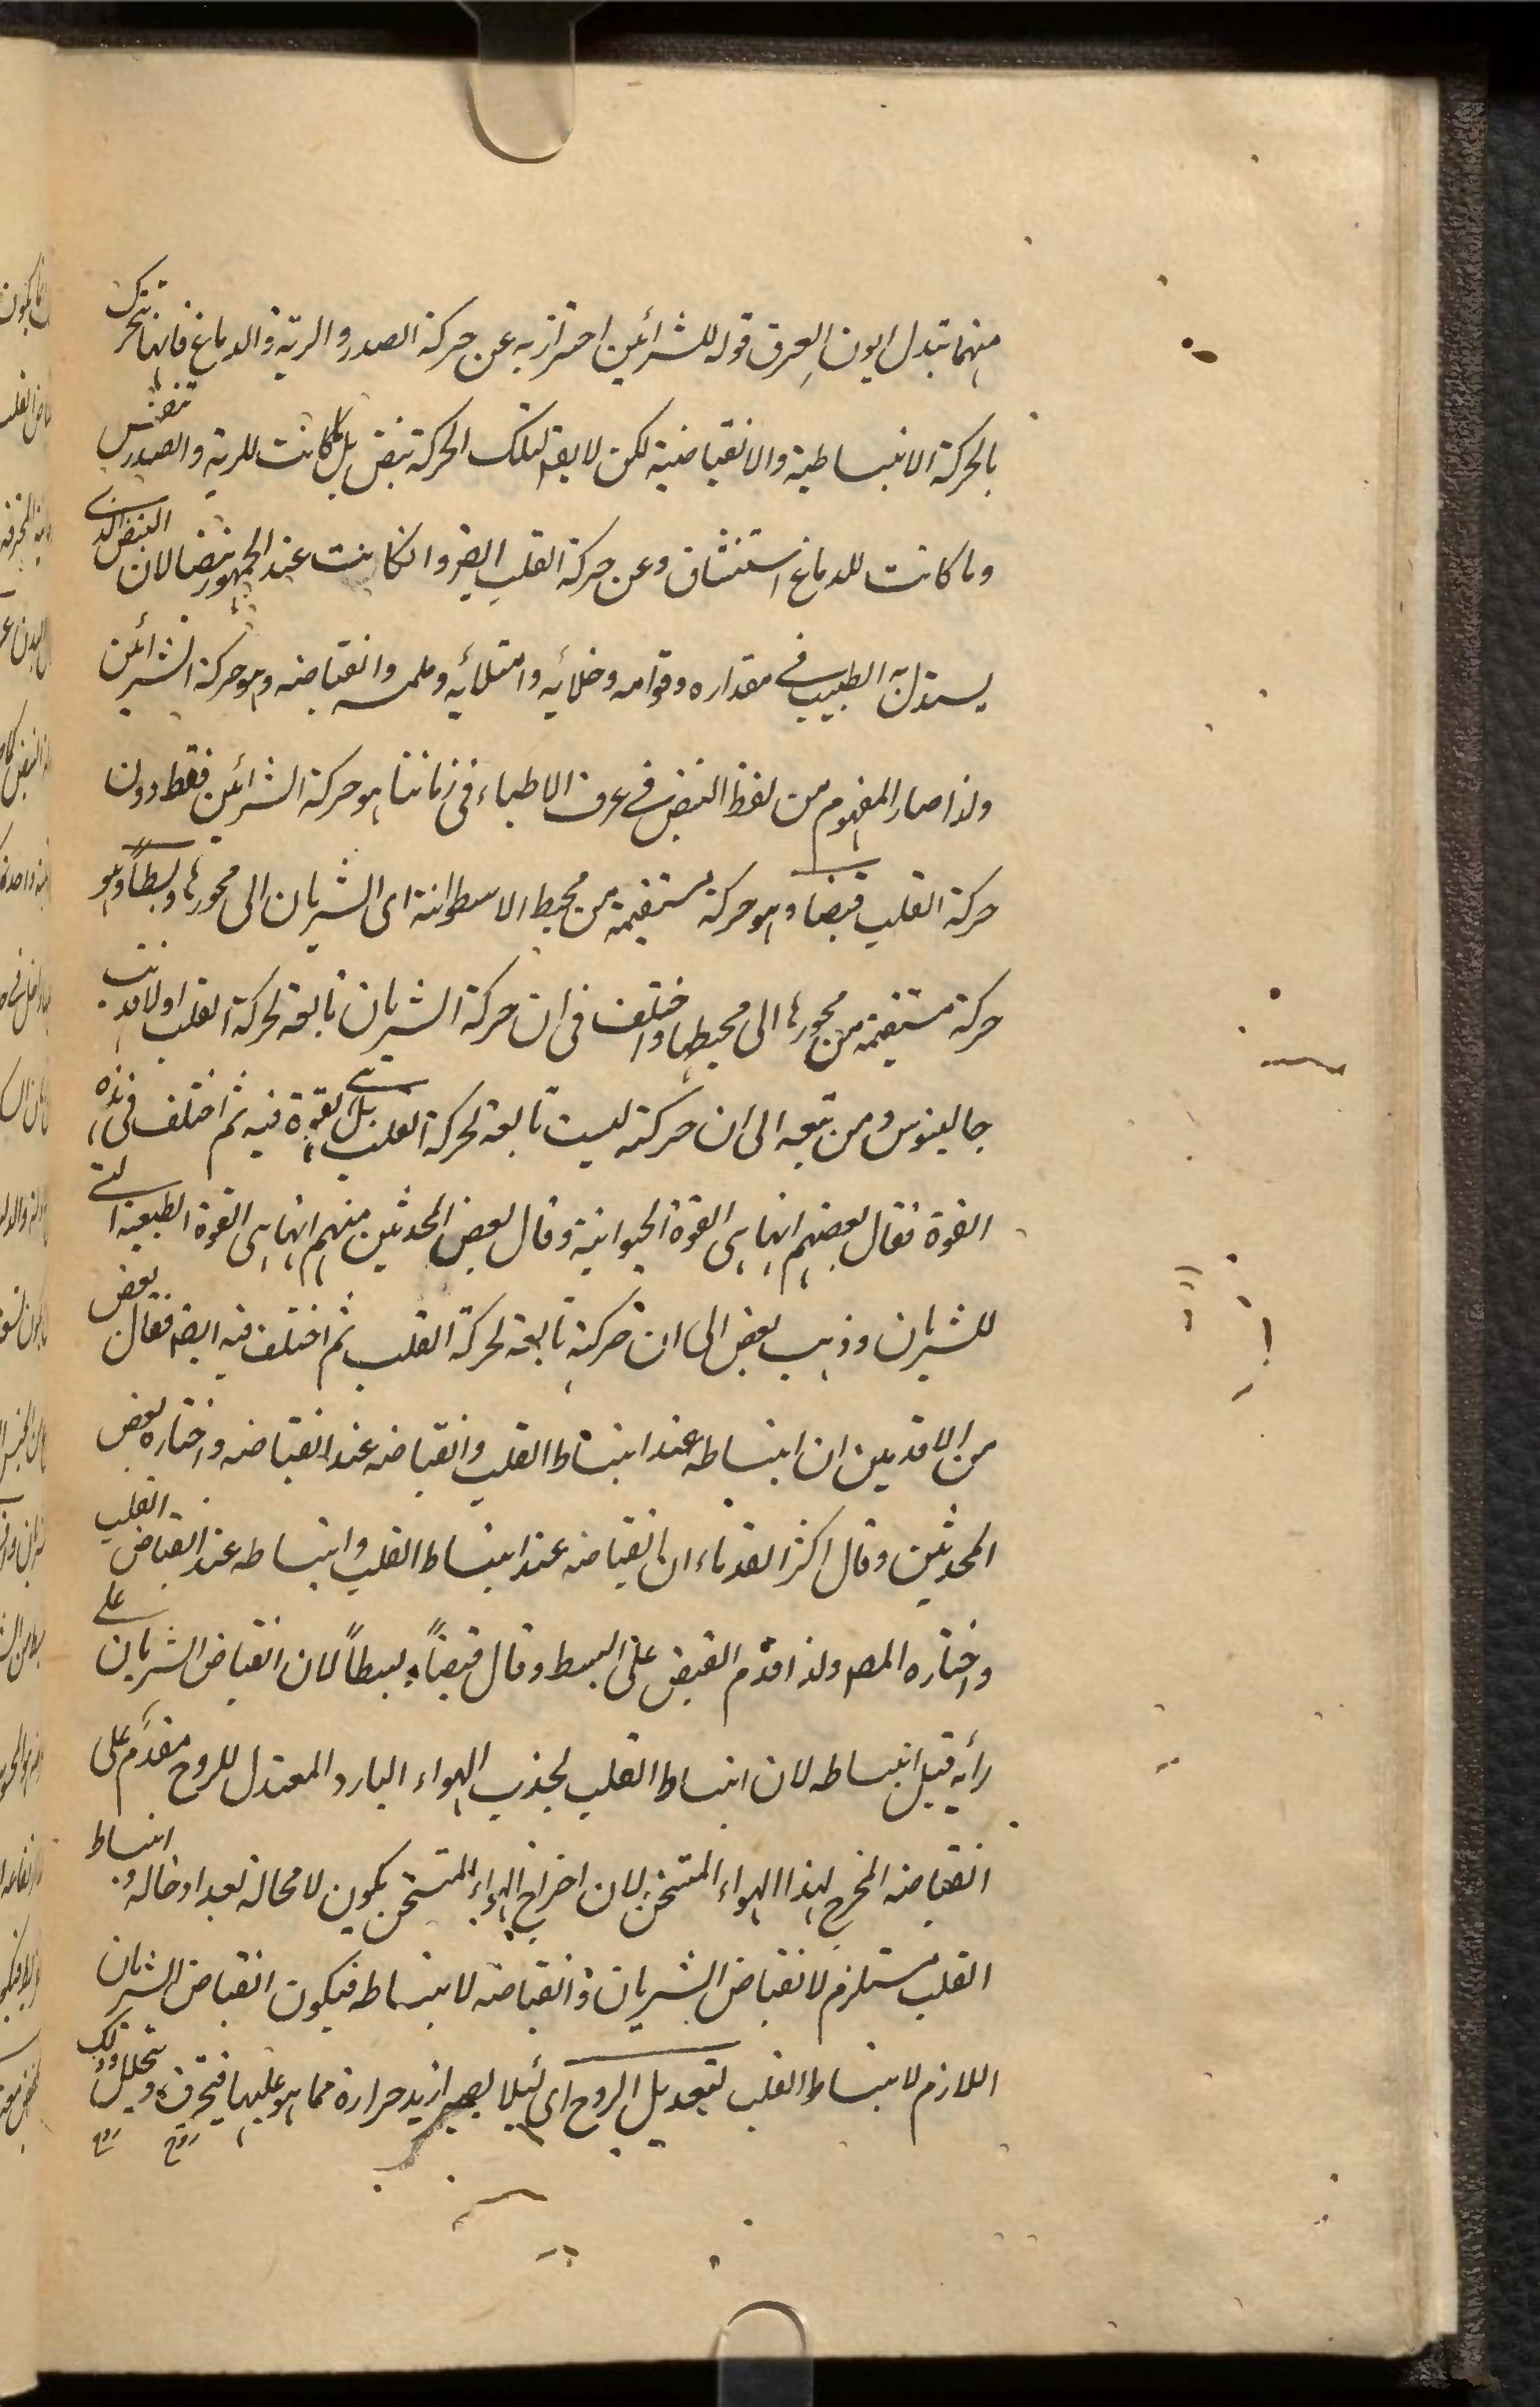 منهما تبدل ايون العرق قوله للشرائين احتراز به عن حركة الصدر والرية والدماغ فانها تتحرك
بالحركة الانبساطية والانقباضية لكن لا يقم لتلك الحركة نبض بل كانت للرية والصدر تنفس
وما كانت للدماغ استنشاق وعن حركة القلب ايضر وانكانت عند الجمهور نبضا لان النبض الذى
يستدل به الطبيب فى مقداره وقوامه وخلائه وامتلائه وملمسه وانقباضه وهو حركة الشرائين
ولذا صار المفهوم من لفظ النبض فى عرف الاطباء فى زماننا هو حركة الشرائين فقط دون
حركة القلب قبضا وهو حركة مستقيمة من محيط الاسطوانة اى الشريان الى محورها وبسطاً وهو
حركة مستقيمة من محورها الى محيطها واختلف فى ان حركة الشريان تابعة لحركة القلب اولا فذهب
جالينوس ومن تبعه الى ان حركته ليست تابعة لحركة القلب بل لقوة فيه ثم اختلف فى هذه
القوة فقال بعضهم انها هى القوة الحيوانية وقال بعض المحدثين منهم انها هى القوة الطبيعية التى
للشريان وذهب بعض الى ان حركته تابعة لحركة القلب ثم اختلف فيه ايضر فقال بعض
من الاقدمين ان انبساطه عند انبساط القلب وانقباضه عند انقباضه واختاره بعض
المحدثين وقال اكثر القدماء ان انقباضه عند انبساط القلب وانبساطه عند انقباض القلب
واختاره المصر ولذا قدّم القبض على البسط وقال قبضاً وبسطاً لان انقباض الشريان على
رأيه قبل انبساطه لان انبساط القلب لجذب الهواء البارد المعتدل للروح مقدَّم على
انقباضه المخرج لهذا الهواء المتسخن لان اخراج الهواء المتسخن يكون لا محالة بعد ادخاله وانبساط
القلب مستلزم لانقباض الشريان وانقباضه لانبساطه فيكون انقباض الشريان
اللازم لانبساط القلب لتعديل الروح اى لئلا يصير ازيد حرارة مما هو عليها فيحترق ويتحلل وذلك
روح روح